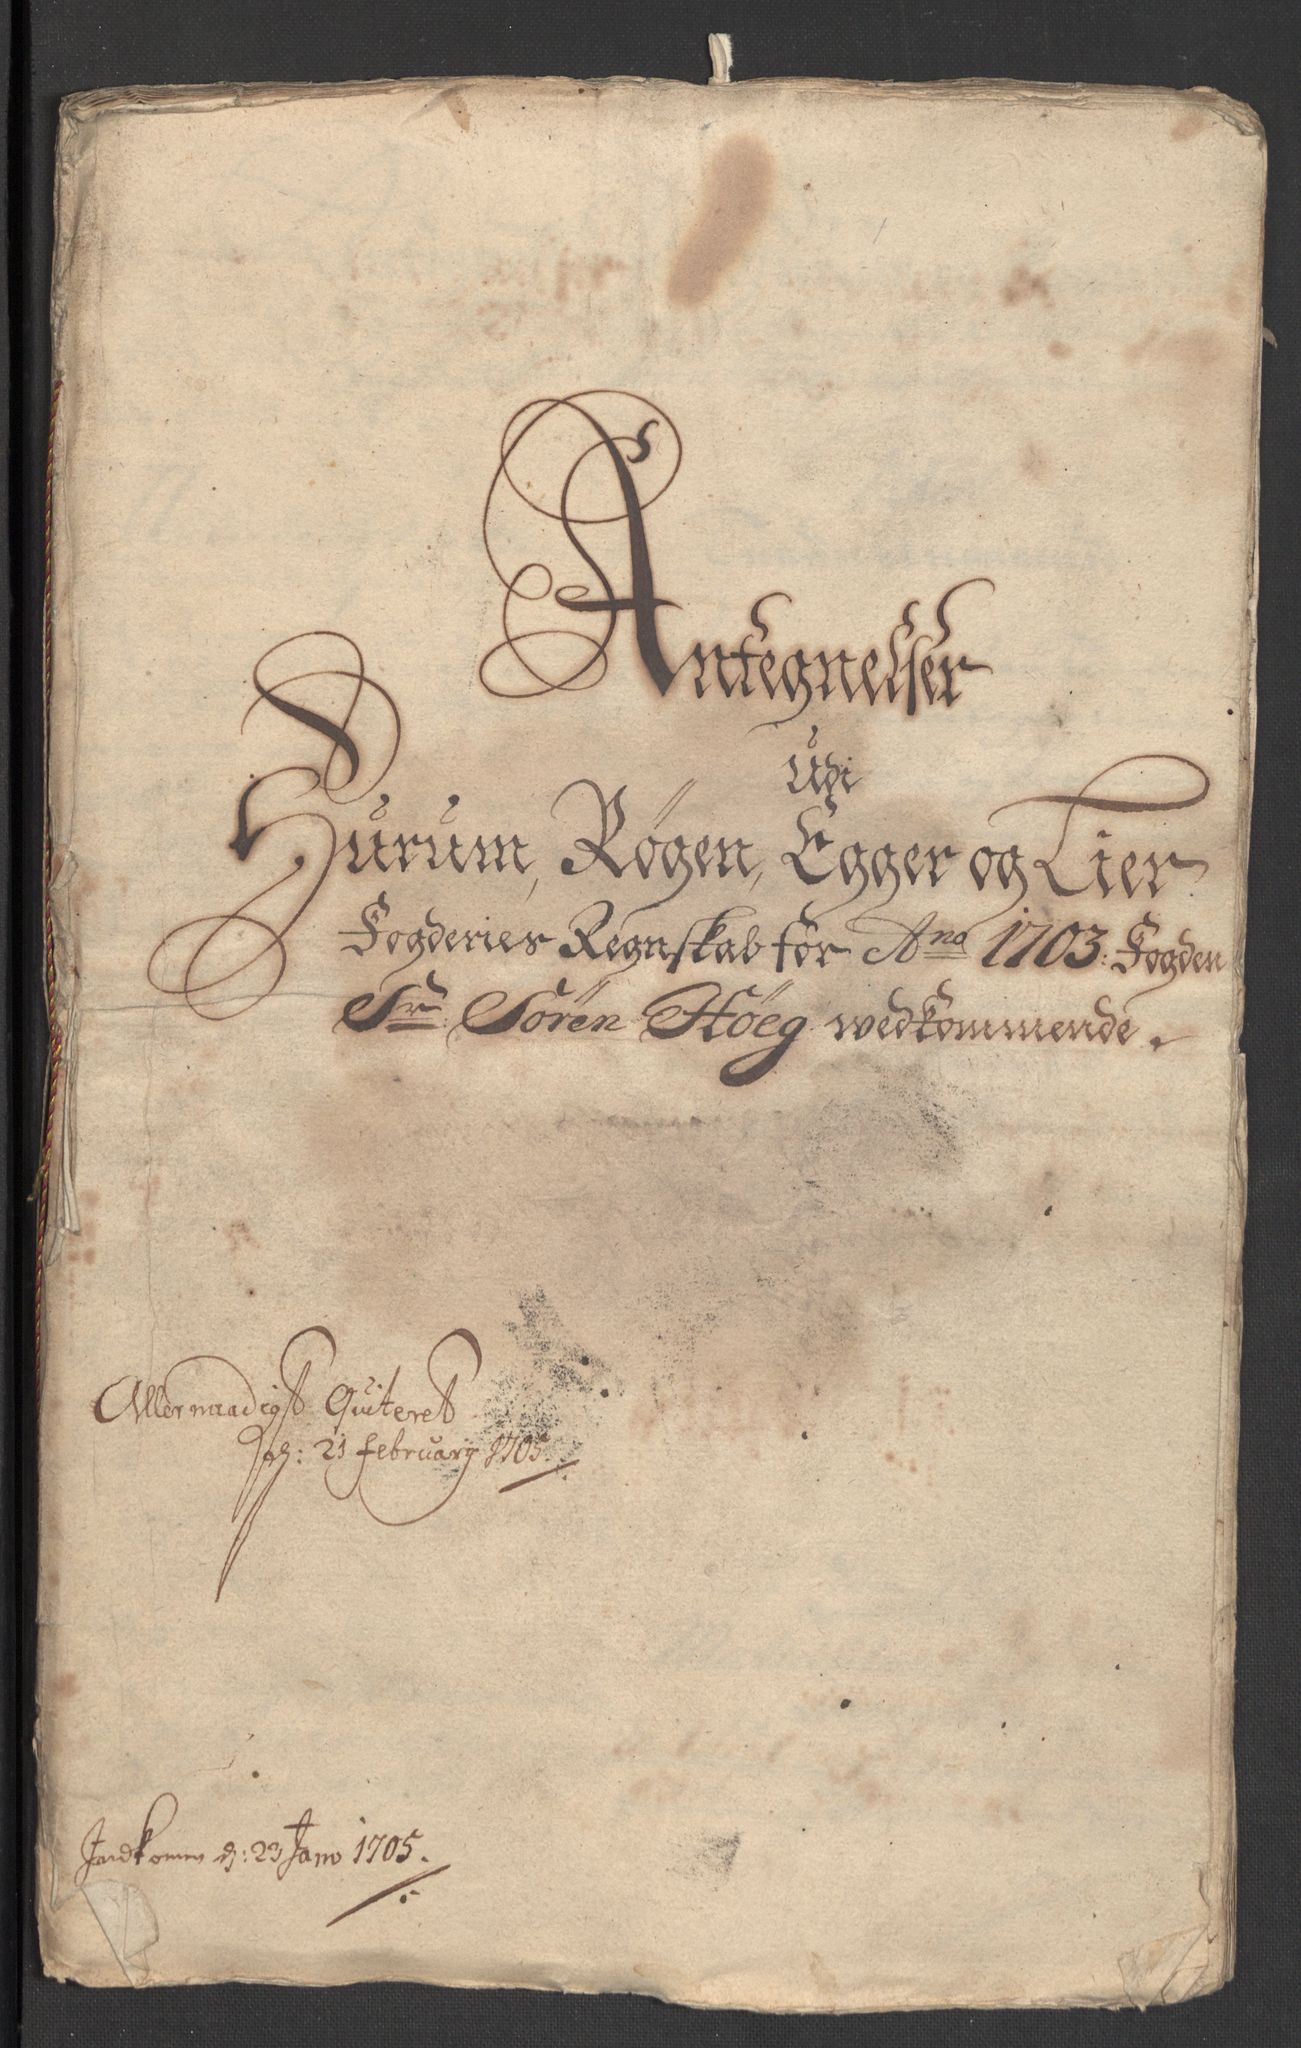 Antegnelser
Udi
Hurum, Røgen, Egger og Lier
Fogderies Regnskab for Ano 1703: Fogden
Sr. Sören Höeg wedkommende.
Allernaadigst Quiteret
d: 21 february 1705.
Indkomm d: 23 Janv 1705.